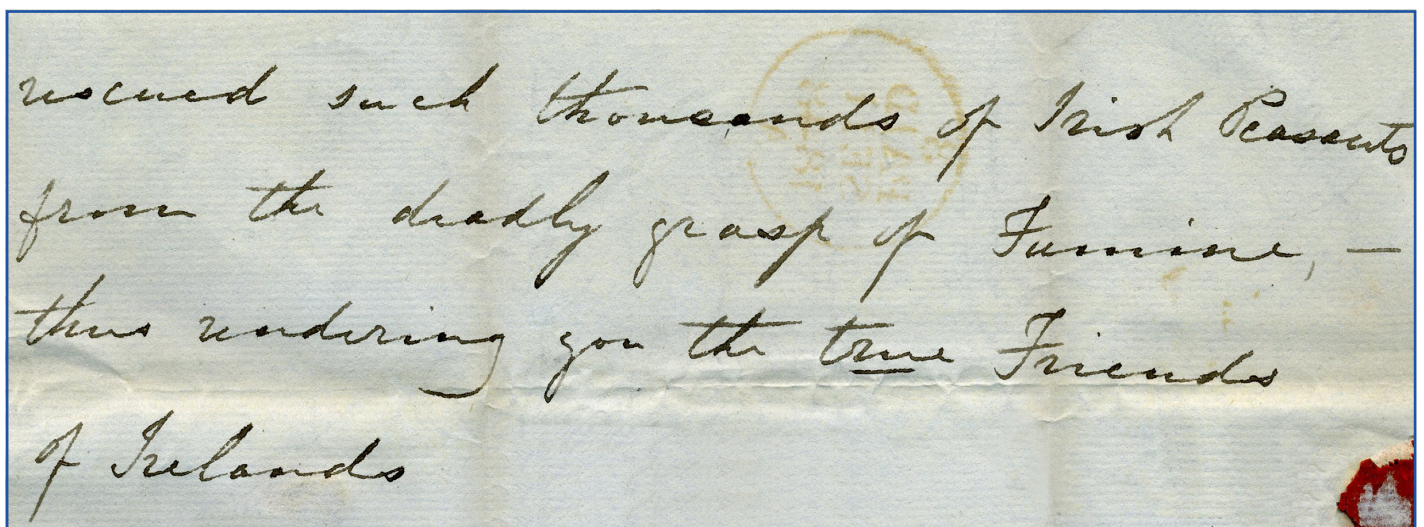 rescued such thousands of Irish Peasants
from the deadly grasp of Famine, —
thus rendering you the true Friends
of Irelands